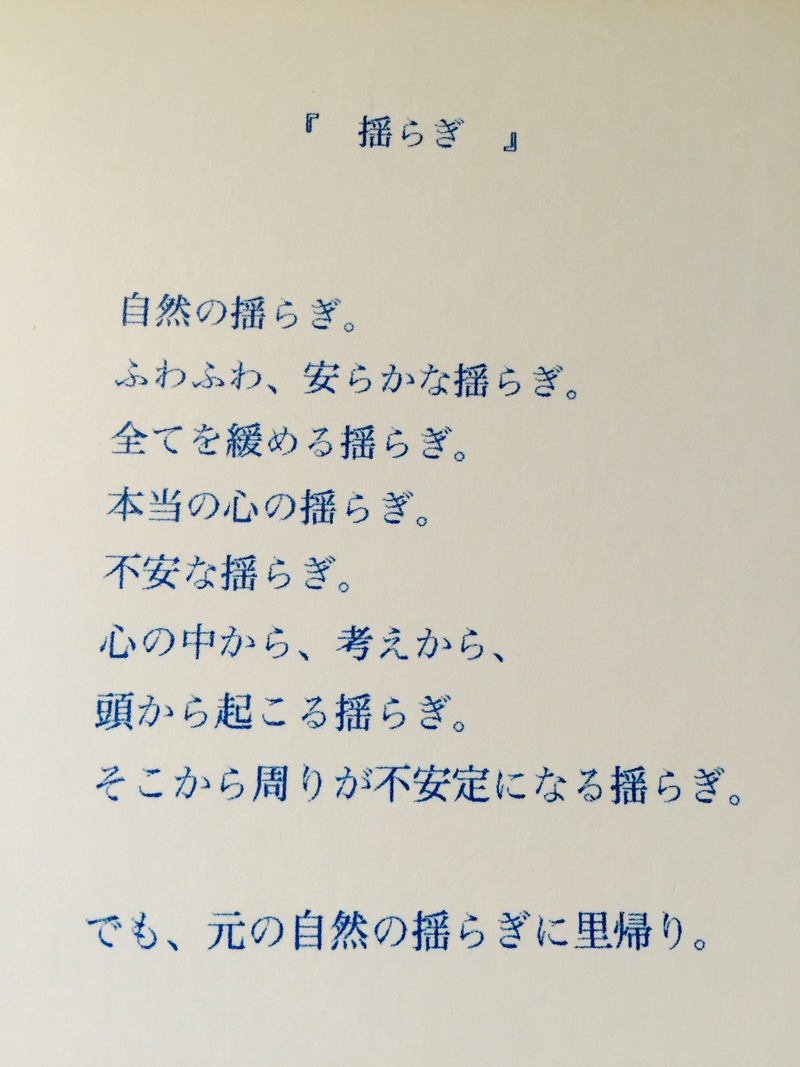 『　揺らぎ　』
自然の揺らぎ。
ふわふわ、安らかな揺らぎ。
全てを緩める揺らぎ。
本当の心の揺らぎ。
不安な揺らぎ。
心の中から、考えから、
頭から起こる揺らぎ。
そこから周りが不安定になる揺らぎ。
でも、元の自然の揺らぎに里帰り。